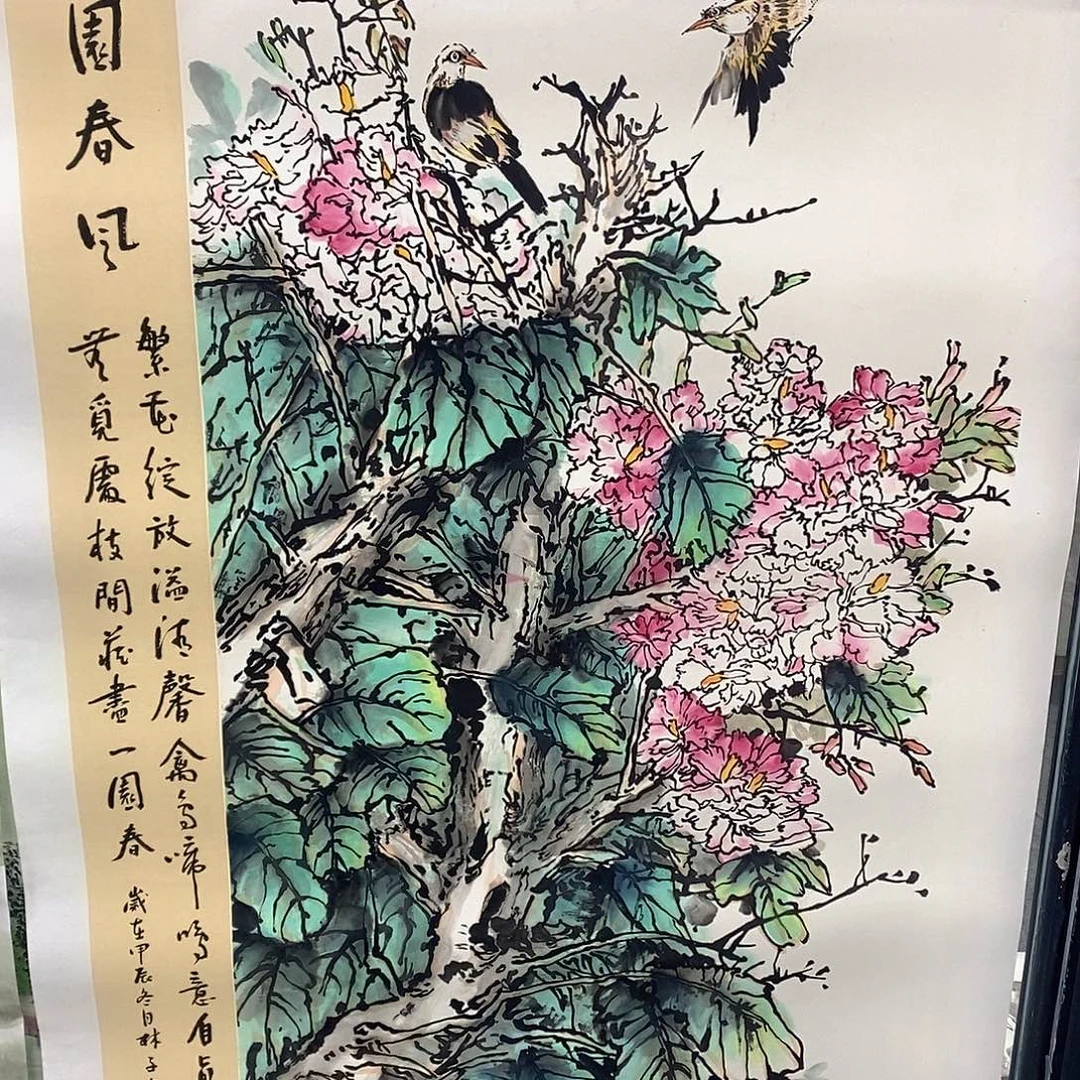 園春风
繁花綻放溢清馨禽鳥啼鳴意自
無覓處枝間藏盡一園春
歲在甲辰冬月林子